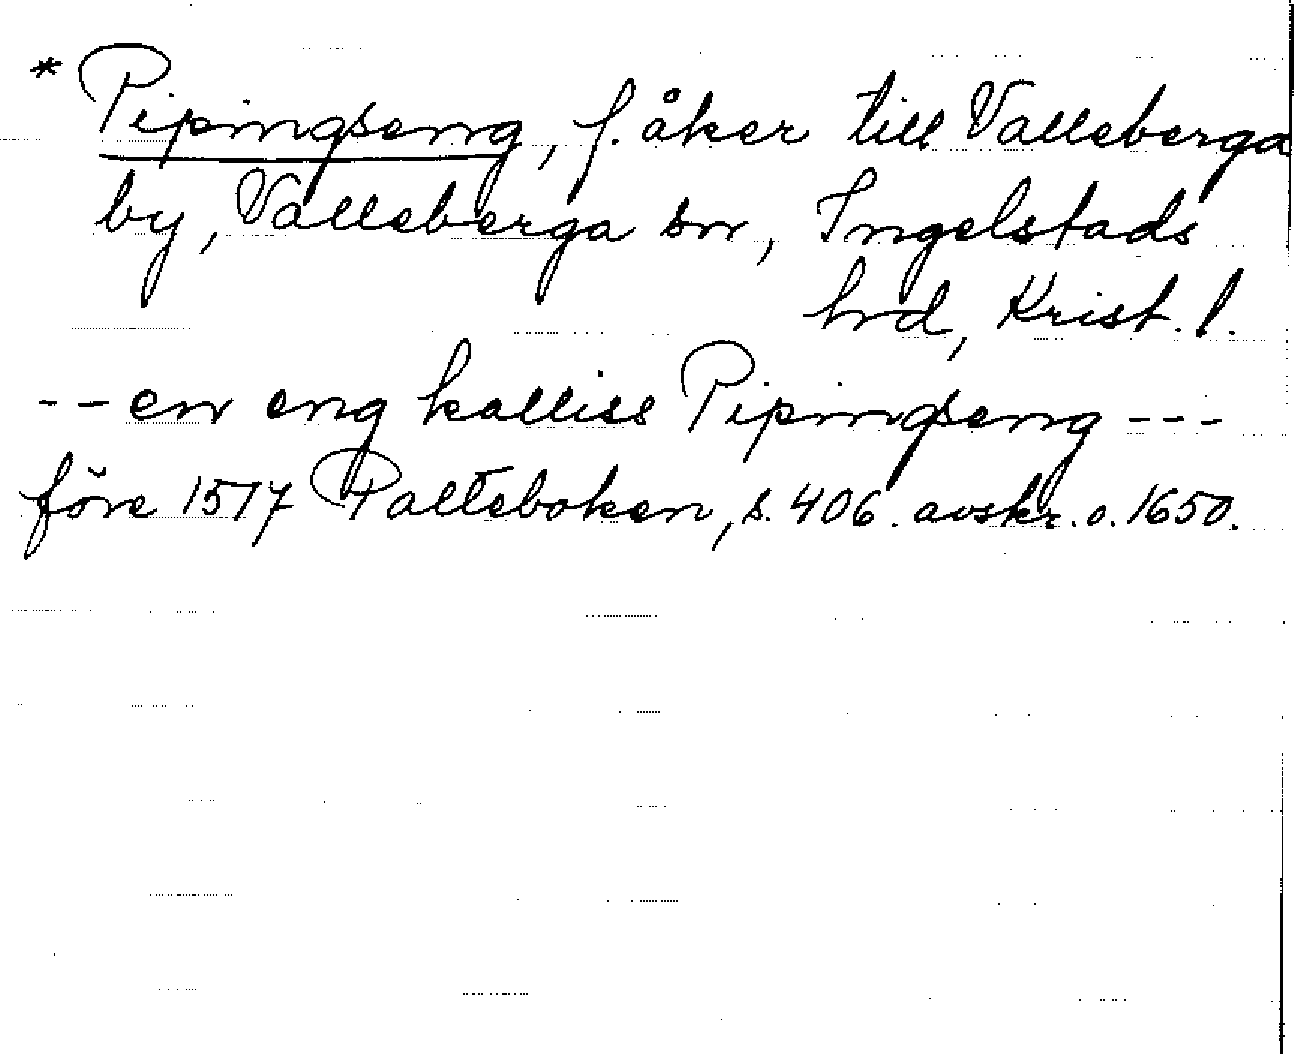 * Pipingseng, f. åker till Valleberga
by, Valleberga sn, Ingelstads
hrd, Krist. l.
-- en eng kalliss Pipingseng ---
före 1517 Palteboken, s. 406. avskr. o. 1650.